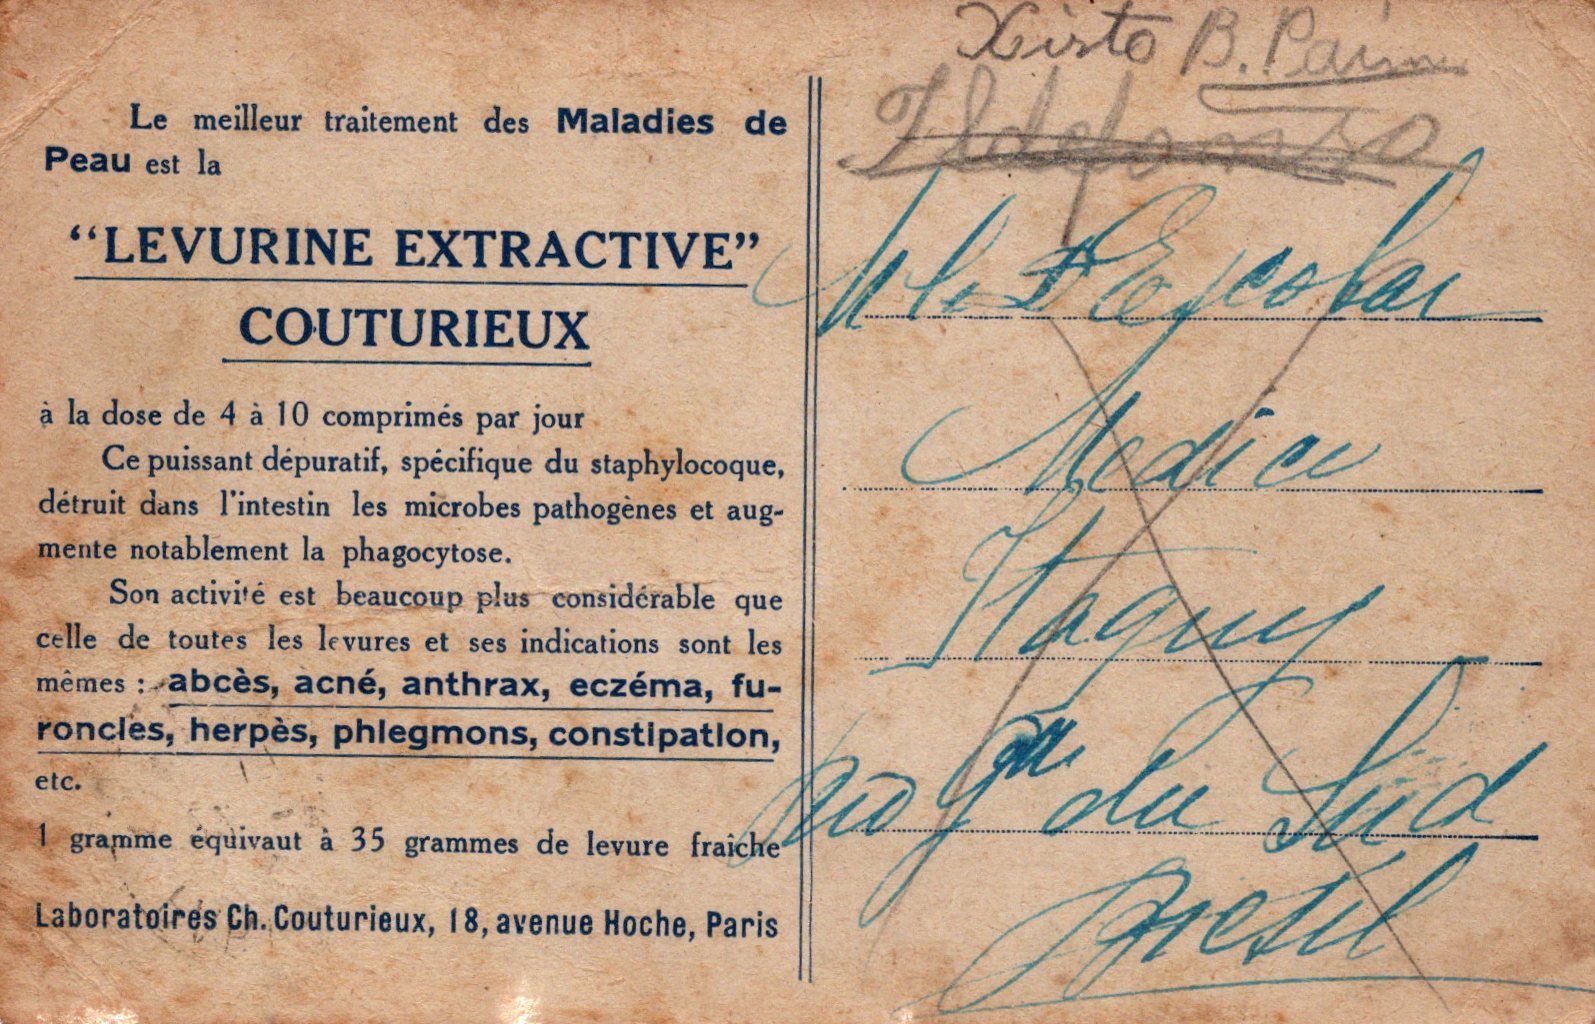 Le meilleur traitement des Maladies de
Peau est la
“LEVURINE EXTRACTIVE”
COUTURIEUX
à la dose de 4 à 10 comprimés par jour
Ce puissant dépuratif, spécifique du staphylocoque,
détruit dans l'intestin les microbes pathogènes et aug-
mente notablement la phagocytose.
Son activité est beaucoup plus considérable que
celle de toutes les levures et ses indications sont les
mêmes : abcès, acné, anthrax, eczéma, fu-
roncles, herpès, phlegmons, constipation,
etc.
1 gramme équivaut à 35 grammes de levure fraîche
Laboratoires Ch. Couturieux, 18, avenue Hoche, Paris
Xisto B. Paim
Ildefonso
Escobar
Medicu
Itaquy
Rio Gde du Sud
Bresil